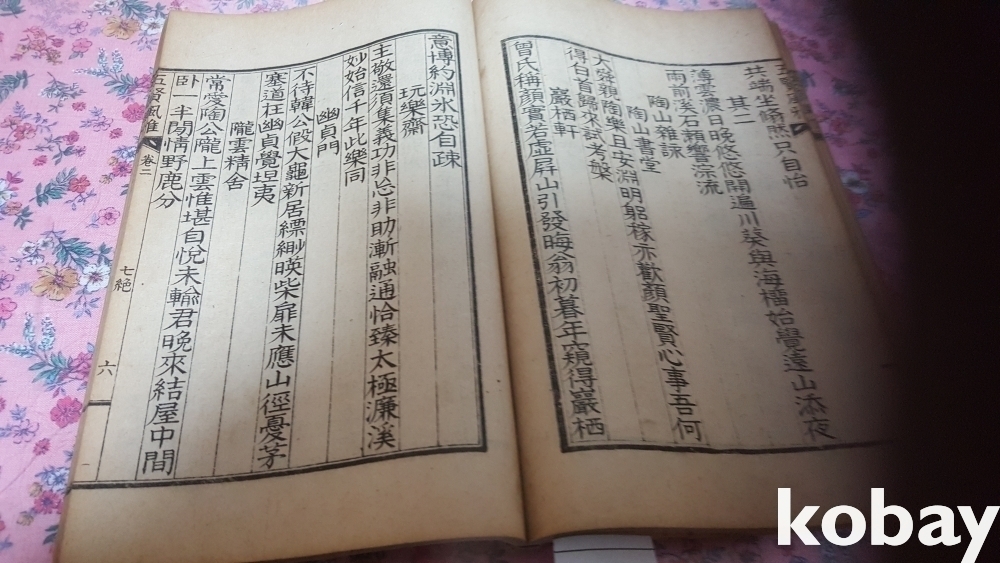 共端坐翛然只自怡
其二
薄雲濃日晚悠悠開遍川葵與海榴始覺遠山添夜
雨前溪石瀨響淙流
陶山雜詠
陶山書堂
大舜親陶樂且安淵明躬稼亦歡顏聖賢心事吾何
得白首歸來試考槃
巖栖軒
曾氏稱顏實若虛屛山引發晦翁初暮年窺得巖栖
意博約淵氷恐自疎
玩樂齋
主敬還須集義功非忘非助漸融通恰臻太極濂溪
妙始信千年此樂同
幽貞門
不待韓公假大龜新居縹緲暎柴扉未應山徑憂茅
塞道在幽貞覺坦夷
隴雲精舍
常愛陶公隴上雲惟堪自悅未輸君晚來結屋中間
卧一半閒情野鹿分
五賢風雅 卷二 七絕 六
kobay